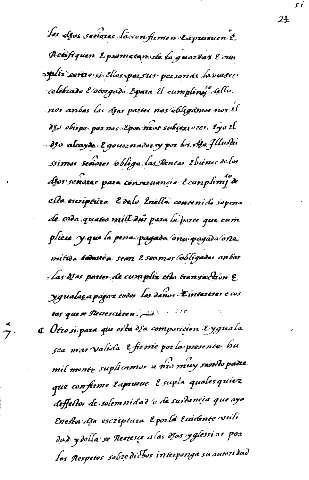 24
los dhos señores la confirmen E aprueven E
Ratifiquen E prometan de la guardar E cun
plir como si Ellos por sus personas la uviesen
celebrado E otorgado E para El cumplimi.º dello
nos anbas las dhas partes nos obligamos nos El
dho obispo por nos E por nros subcesores E yo El
dho alcayde E governador y por los dhos Illustri
simos señores obligo las Rentas E bienes de los
dhos señores para E cumplimi.º de
esta escriptura E de lo En ella contenido so pena
de cada quatro mill para la parte que cum
pliere y que la pena pagada o no pagada o
mitida seamos obligados anbas
las dhas partes de cumplir esta transacion E
yguala E pagar todos los daños E intereses E cos
tas que se Recrecieren
7. Otrosi para que esta dha composicion E yguala
sea mas valida E firme por la presente hu
mil mente suplicamos a nro muy santo padre
que confirme E aprueve E supla qualesquiez
deffettos de solemnidad o de sustancia que aya
En esta dha escriptura E por la Evidente utili
dad y della se Recrece a las dhas yglesias por
los Respetos sobre dichos interponga su autoridad